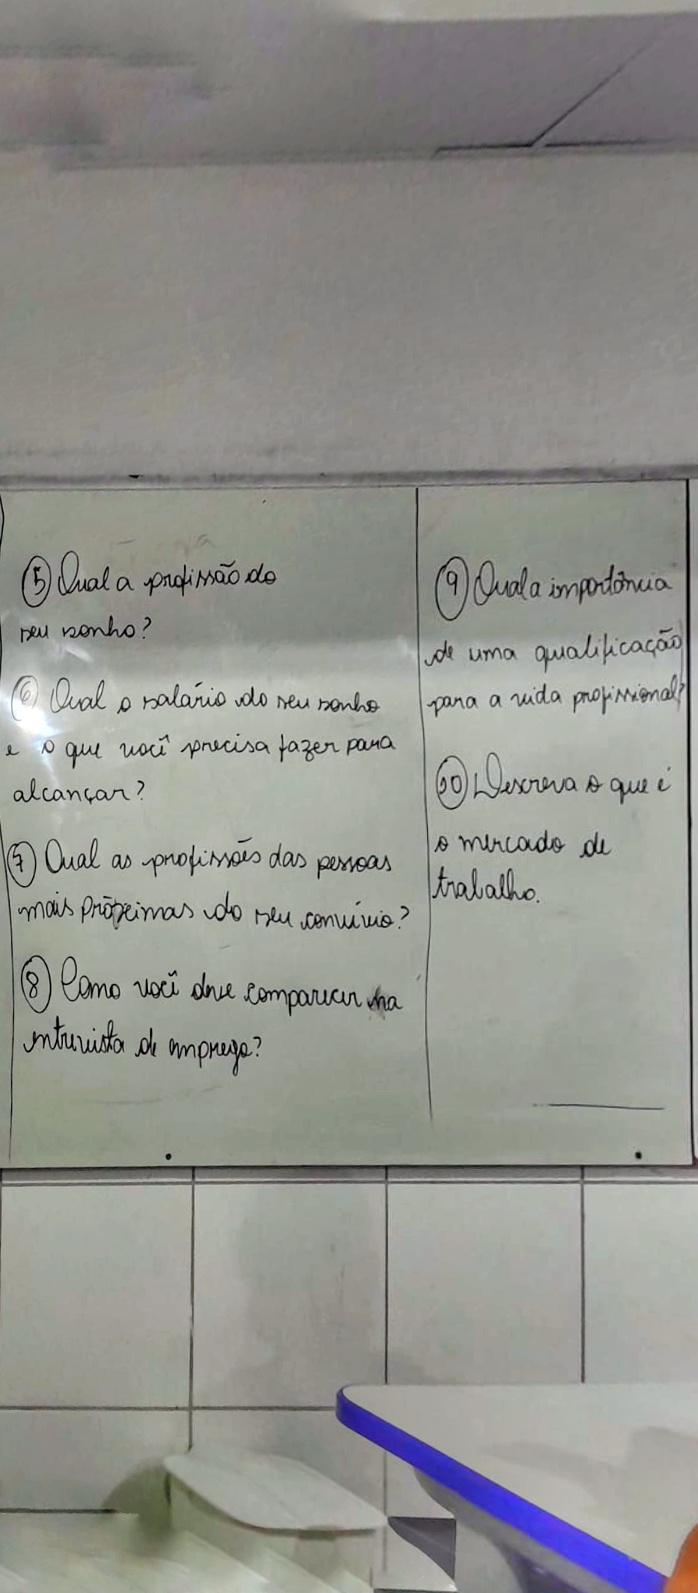 5 Qual a profissão do
seu sonho?
6 Qual o salário do seu sonho
e o que você precisa fazer para
alcançar?
7 Qual as profissões das pessoas
mais próximas do seu convívio?
8 Como você deve comparecer na
entrevista de emprego?
9 Qual a importância
de uma qualificação
para a vida profissional?
10 Descreva o que é
o mercado de
trabalho.